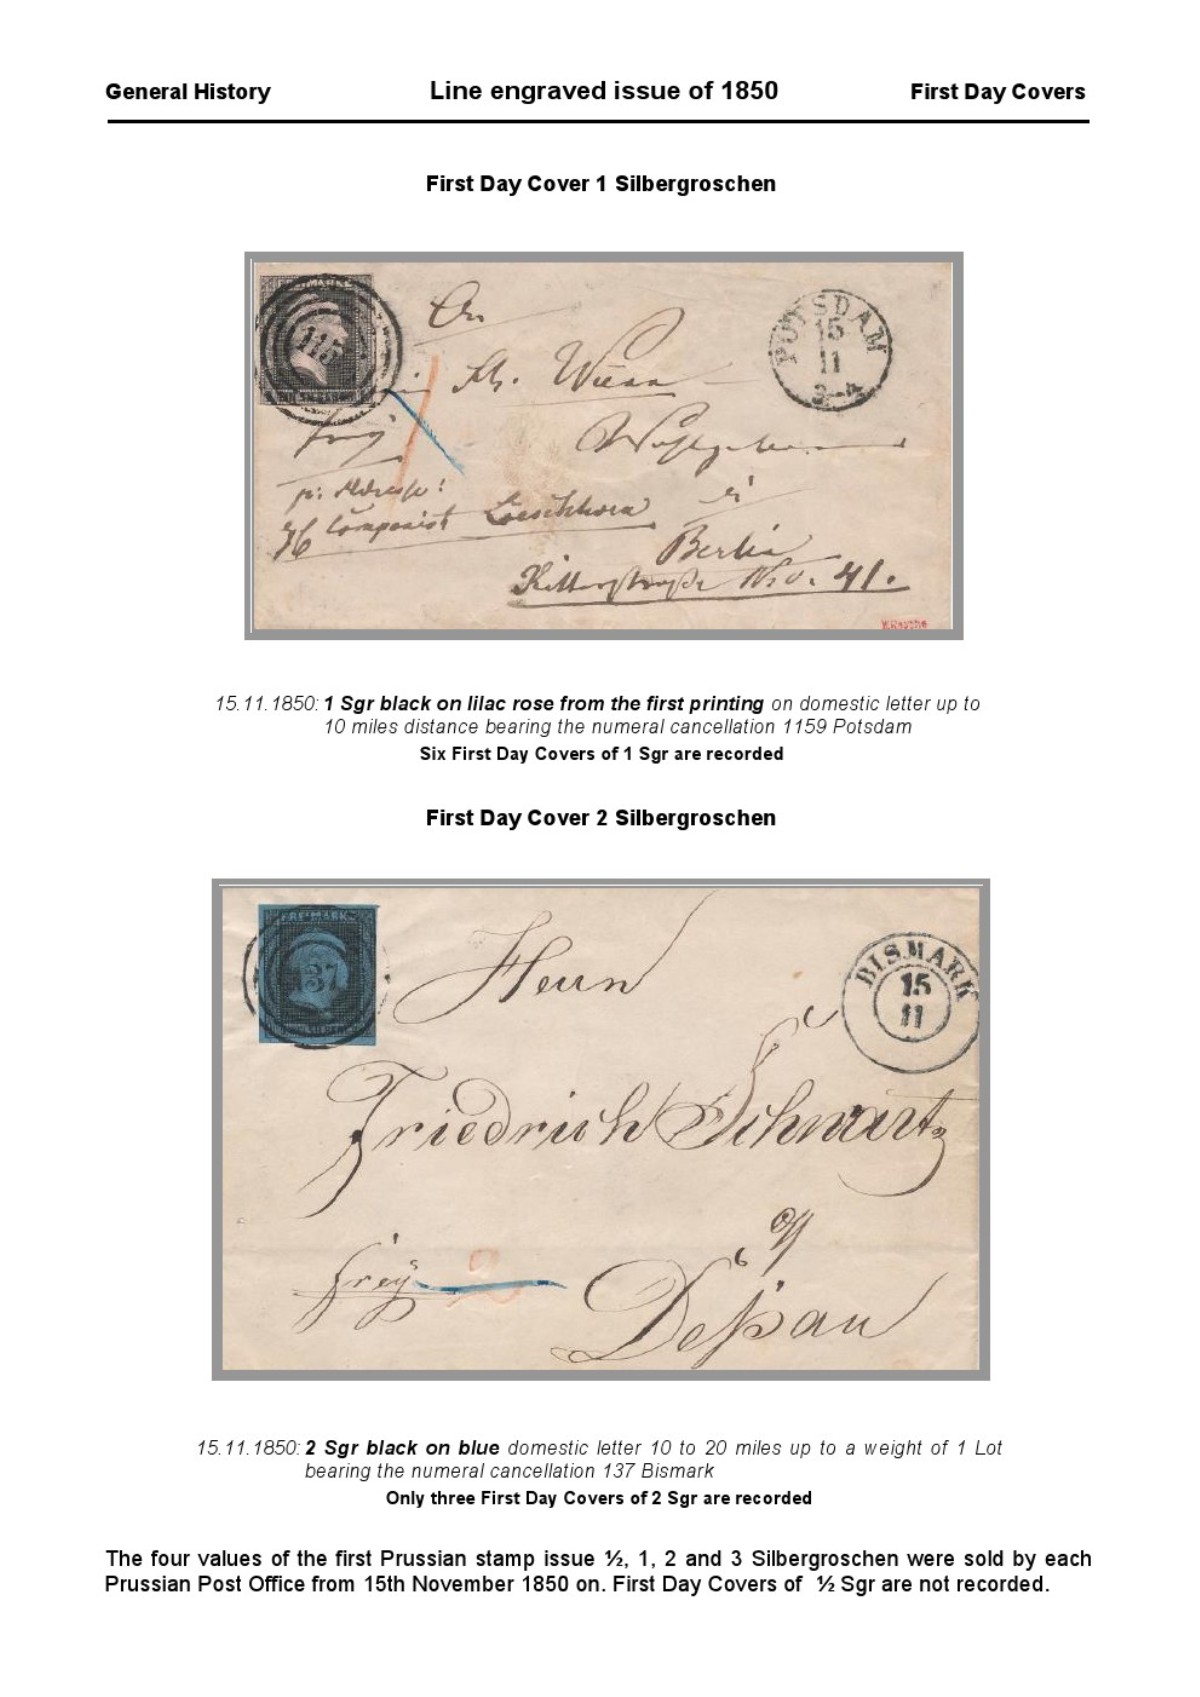 General History Line engraved issue of 1850 First Day Covers
First Day Cover 1 Silbergroschen
An
POTSDAM
15
11
3-4
115
Wohlgeboren
pr: Adresse:
Componist Loeschhorn
Berlin
Ritterstraße Nro. 41.
W.Rasche
15.11.1850: 1 Sgr black on lilac rose from the first printing on domestic letter up to
10 miles distance bearing the numeral cancellation 1159 Potsdam
Six First Day Covers of 1 Sgr are recorded
First Day Cover 2 Silbergroschen
FREIMARKE
137
BISMARK
15
11
Herrn
Friedrich Schwartz
frey
2
Deßau
15.11.1850: 2 Sgr black on blue domestic letter 10 to 20 miles up to a weight of 1 Lot
bearing the numeral cancellation 137 Bismark
Only three First Day Covers of 2 Sgr are recorded
The four values of the first Prussian stamp issue ½, 1, 2 and 3 Silbergroschen were sold by each
Prussian Post Office from 15th November 1850 on. First Day Covers of ½ Sgr are not recorded.